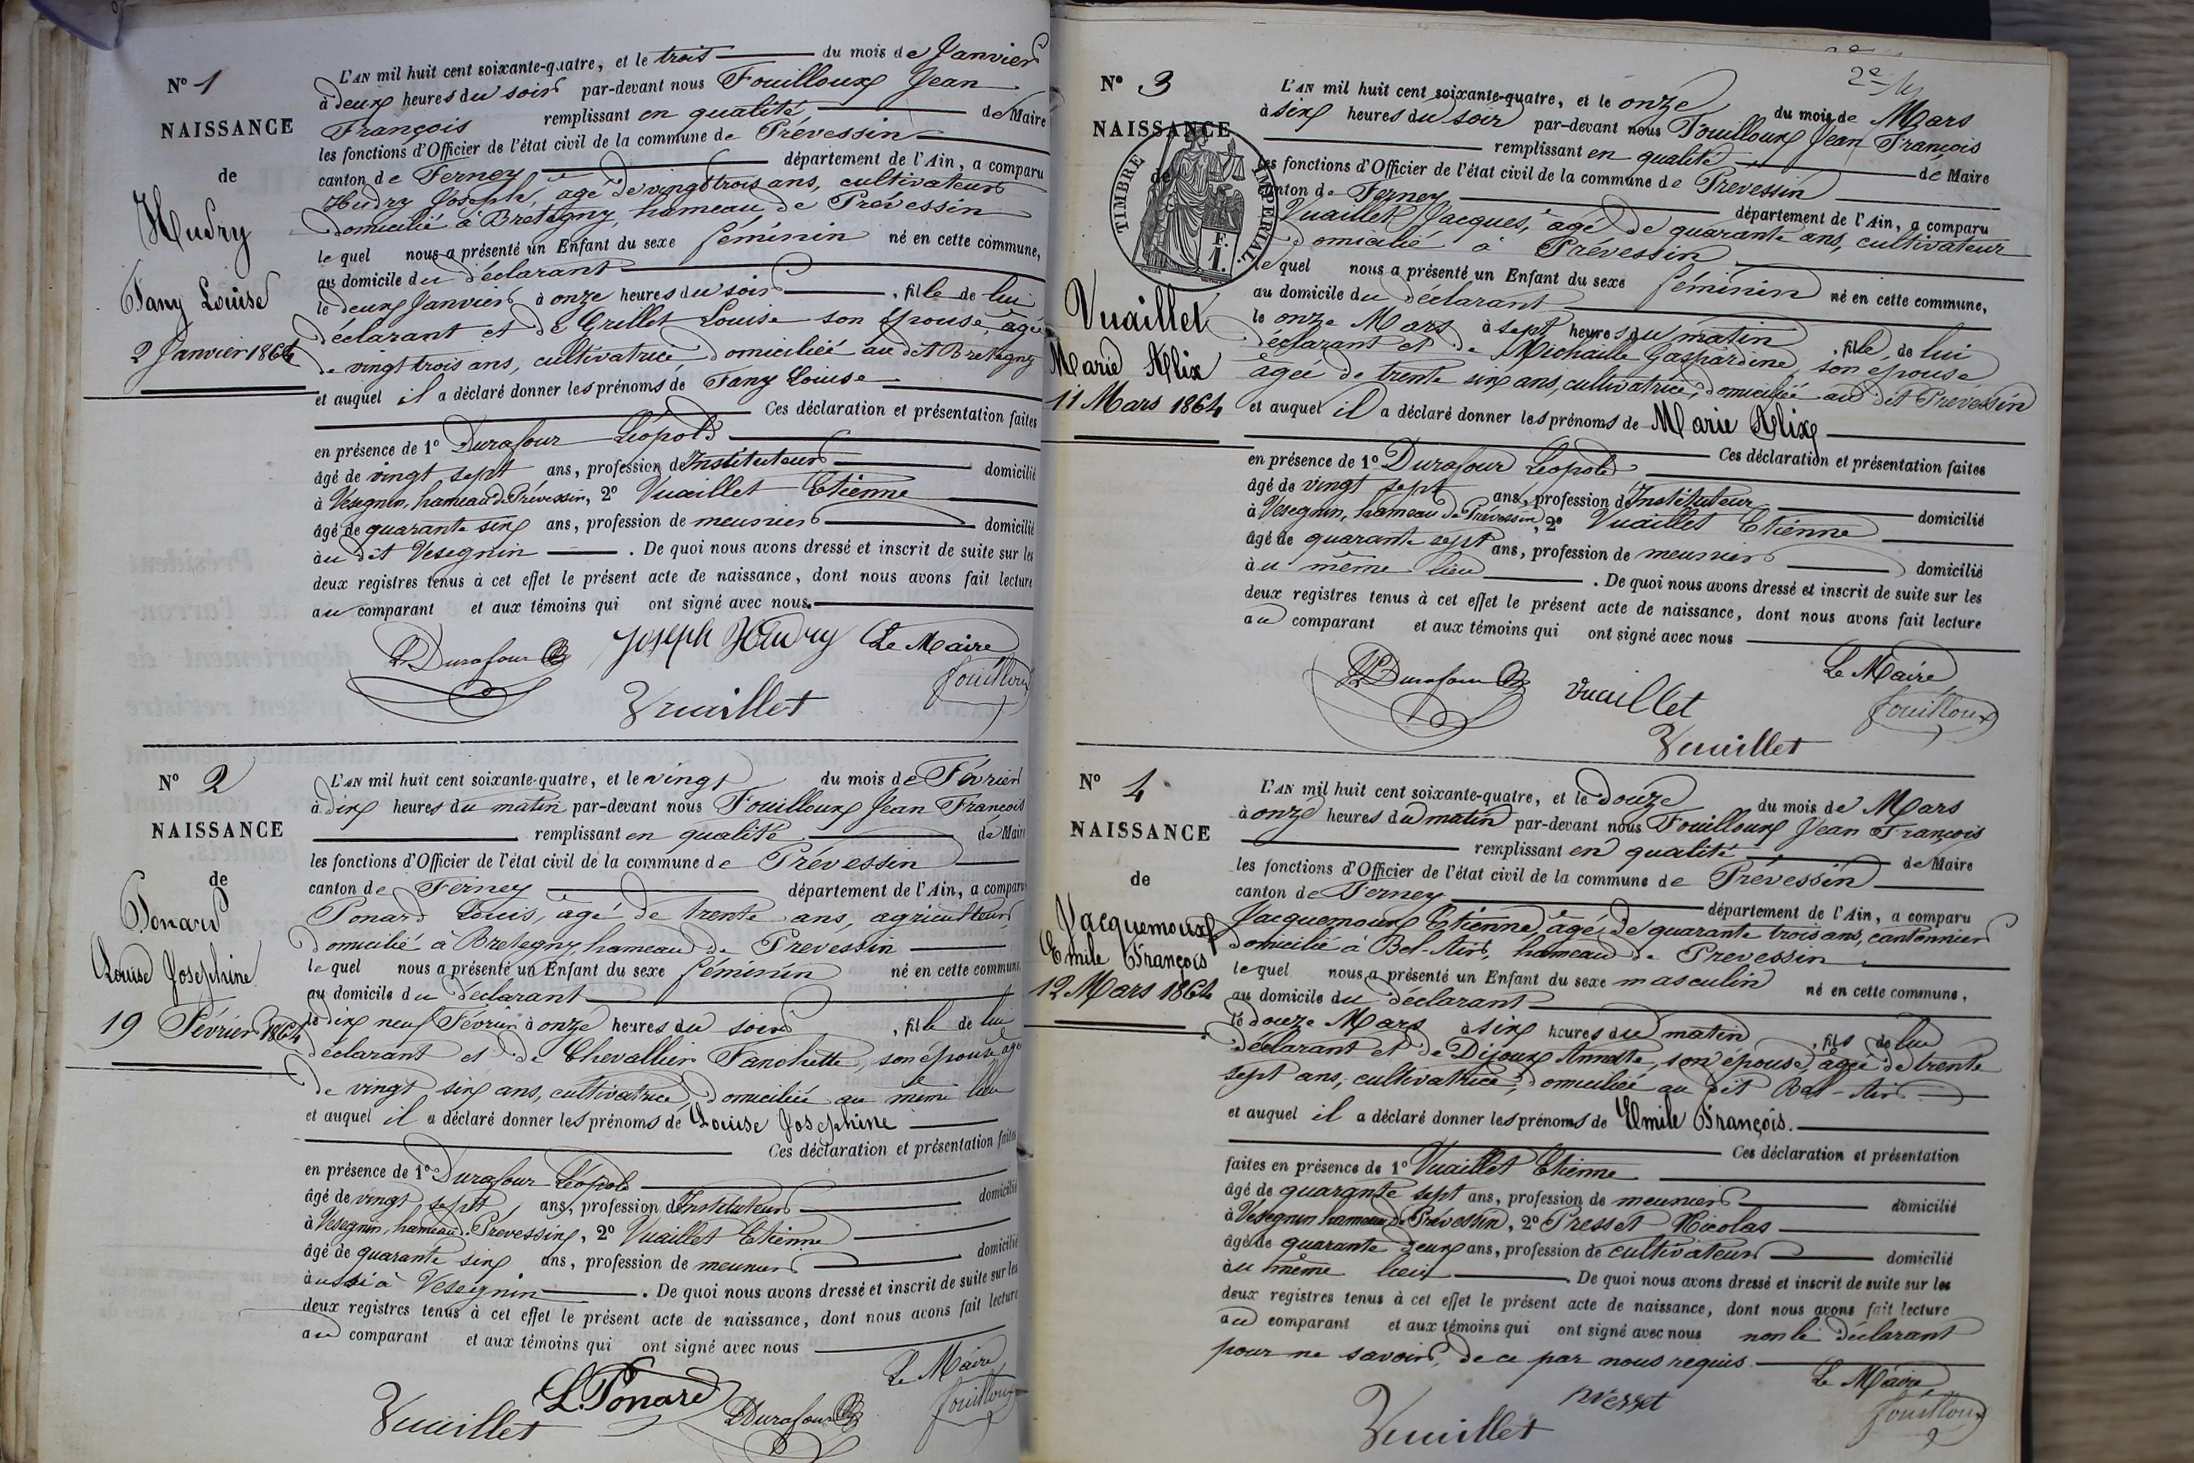 N° 1
NAISSANCE
de
Hudry
Fany Louise
2 Janvier 1864
L'AN mil huit cent soixante-quatre, et le trois du mois de Janvier
à deux heures du soir par-devant nous Fouilloux Jean
François remplissant en qualité de Maire
les fonctions d'Officier de l'état civil de la commune de Prévessin
canton de Ferney département de l'Ain, a comparu
Hudry Joseph, âgé de vingt trois ans, cultivateur
domicilié à Bretegny, hameau de Prévessin
le quel nous a présenté un Enfant du sexe féminin né en cette commune,
au domicile du déclarant
le deux Janvier à onze heures du soir, fille de lui
déclarant et de Grillet Louise son épouse, âgée
de vingt trois ans, cultivatrice domiciliée au dit Bretegny
et auquel il a déclaré donner les prénoms de Fany Louise
Ces déclaration et présentation faites
en présence de 1° Durafour Léopold
âgé de vingt sept ans, profession d'Instituteur domicilié
à Vésegnin, hameau de Prévessin, 2° Vuaillet Etienne
âgé de quarante six ans, profession de meunier domicilié
au dit Vesegnin . De quoi nous avons dressé et inscrit de suite sur les
deux registres tenus à cet effet le présent acte de naissance, dont nous avons fait lecture
au comparant et aux témoins qui ont signé avec nous.
L Durafour Joseph Hudry Le Maire
Vuaillet Fouilloux
N° 2
NAISSANCE
de
Ponard
Louise Josephine
19 Février 1864
L'AN mil huit cent soixante-quatre, et le vingt du mois de Février
à dix heures du matin par-devant nous Fouilloux Jean François
remplissant en qualité de Maire
les fonctions d'Officier de l'état civil de la commune de Prévessin
canton de Ferney département de l'Ain, a comparu
Ponard Louis, âgé de trente ans, agriculteur
domicilié à Bretegny, hameau de Prevessin
le quel nous a présenté un Enfant du sexe féminin né en cette commune
au domicile du déclarant
le dix neuf Février à onze heures du soir, fille de lui
déclarant et de Chevallier Fanchette, son épouse, âgée
de vingt six ans, cultivatrice, domiciliée au même lieu
et auquel il a déclaré donner les prénoms de Louise Josephine
Ces déclaration et présentation faites
en présence de 1° Durafour Léopold
âgé de vingt sept ans, profession d'Instituteur domicilié
à Vesegnin, hameau Prevessin, 2° Vuaillet Etienne
âgé de quarante six ans, profession de meunier domicilié
aussi à Vesegnin . De quoi nous avons dressé et inscrit de suite sur les
deux registres tenus à cet effet le présent acte de naissance, dont nous avons fait lecture
au comparant et aux témoins qui ont signé avec nous
Le Maire
Vuaillet L. Ponard L Durafour Fouilloux
2e
N° 3
NAISSANCE
de
TIMBRE IMPERIAL
F.
1.
Vuaillet
Marie Alix
11 Mars 1864
L'AN mil huit cent soixante-quatre, et le onze du mois de Mars
à six heures du soir par-devant nous Fouilloux Jean François
remplissant en qualité de Maire
les fonctions d'Officier de l'état civil de la commune de Prévessin
canton de Ferney département de l'Ain, a comparu
Vuaillet Jacques, âgé de quarante ans, cultivateur
domicilié à Prévessin
le quel nous a présenté un Enfant du sexe féminin né en cette commune,
au domicile du déclarant
le onze Mars à sept heures du matin, fille, de lui
déclarant et de Michaille Gaspardine, son épouse
âgée de trente six ans, cultivatrice, domiciliée au dit Prevessin
et auquel il a déclaré donner les prénoms de Marie Alix
Ces déclaration et présentation faites
en présence de 1° Durafour Léopold
âgé de vingt sept ans, profession d'Instituteur domicilié
à Vésegnin, hameau de Prévessin, 2° Vuaillet Etienne
âgé de quarante sept ans, profession de meunier domicilié
au même lieu . De quoi nous avons dressé et inscrit de suite sur les
deux registres tenus à cet effet le présent acte de naissance, dont nous avons fait lecture
au comparant et aux témoins qui ont signé avec nous
L Durafour Vuaillet Le Maire
Vuaillet Fouilloux
N° 4
NAISSANCE
de
Jacquemoux
Emile François
12 Mars 1864
L'AN mil huit cent soixante-quatre, et le douze du mois de Mars
à onze heures du matin par-devant nous Fouilloux Jean François
remplissant en qualité de Maire
les fonctions d'Officier de l'état civil de la commune de Prévessin
canton de Ferney département de l'Ain, a comparu
Jacquemoux Etienne, âgé de quarante trois ans, cantonnier
domicilié à Bel-Air, hameau de Prevessin
le quel nous a présenté un Enfant du sexe masculin né en cette commune,
au domicile du déclarant
le douze Mars à six heures du matin, fils de lui
déclarant et de Dijoux Annette, son épouse, âgée de trente
sept ans, cultivatrice, domiciliée au dit Bel-Air
et auquel il a déclaré donner les prénoms de Emile François.
Ces déclaration et présentation
faites en présence de 1° Vuaillet Etienne
âgé de quarante sept ans, profession de meunier domicilié
à Vésegnin hameau de Prévessin, 2° Presset Nicolas
âgé de quarante deux ans, profession de cultivateur domicilié
au même lieu . De quoi nous avons dressé et inscrit de suite sur les
deux registres tenus à cet effet le présent acte de naissance, dont nous avons fait lecture
au comparant et aux témoins qui ont signé avec nous non le déclarant
pour ne savoir, de ce par nous requis
Le Maire
Vuaillet Presset Fouilloux